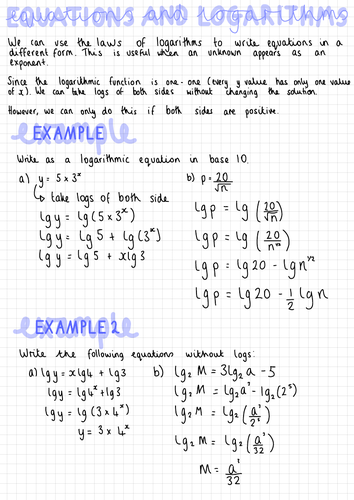 EQUATIONS AND LOGARITHMS
We can use the laws of logarithms to write equations in a
different form. This is useful when an unknown appears as an
exponent.
Since the logarithmic function is one-one (every y value has only one value
of x). We can take logs of both sides without changing the solution.
However, we can only do this if both sides are positive.
example
EXAMPLE
Write as a logarithmic equation in base 10.
a) y = 5 × 3ˣ
↳ take logs of both side
lg y = lg (5 × 3ˣ)
lg y = lg 5 + lg (3ˣ)
lg y = lg 5 + x lg 3
b) p = 20/√n
lg p = lg (20/√n)
lg p = lg (20/n^½)
lg p = lg 20 - lg n^½
lg p = lg 20 - 1/2 lg n
example
EXAMPLE 2
Write the following equations without logs:
a) lg y = x lg 4 + lg 3
lg y = lg 4ˣ + lg 3
lg y = lg (3 × 4ˣ)
y = 3 × 4ˣ
b) lg₂ M = 3 lg₂ a - 5
lg₂ M = lg₂ a³ - lg₂ (2⁵)
lg₂ M = lg₂ (a³/2⁵)
lg₂ M = lg₂ (a³/32)
M = a³/32